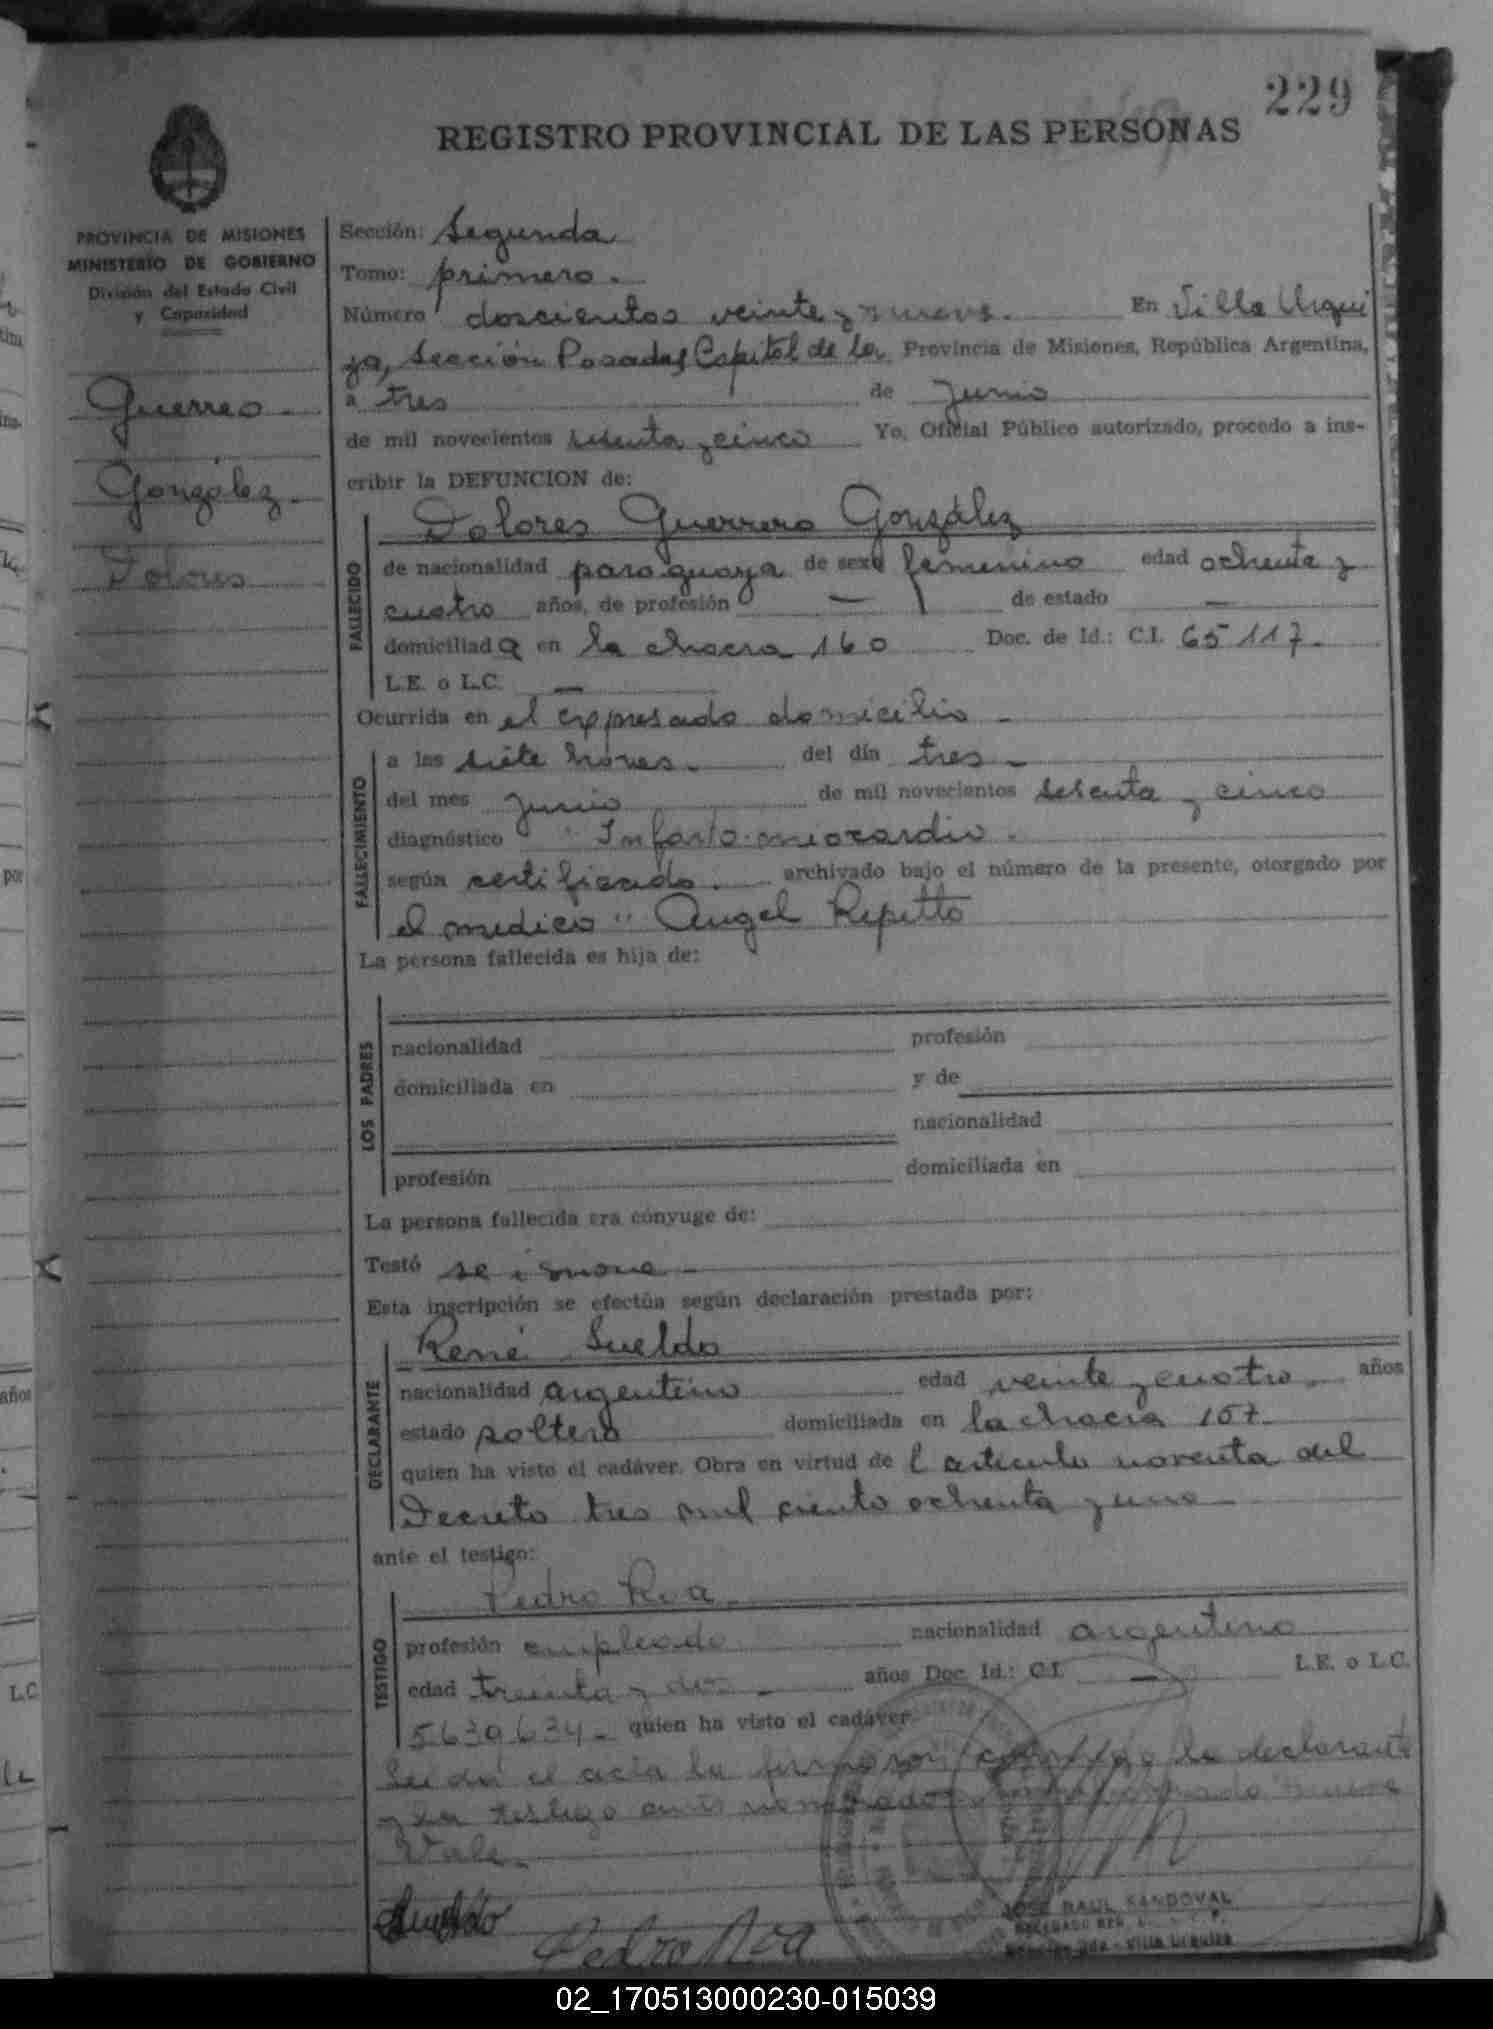 229
REGISTRO PROVINCIAL DE LAS PERSONAS
PROVINCIA DE MISIONES
MINISTERIO DE GOBIERNO
División del Estado Civil
y Capacidad
Guerreo
González
Dolores
Sección: Segunda
Tomo: primero.
Número doscientos veinte y nueve. En Villa Urqui
za, Sección Posadas Capital de la Provincia de Misiones, República Argentina,
a tres de Junio
de mil novecientos setenta y cinco Yo, Oficial Público autorizado, procedo a ins-
cribir la DEFUNCION de:
FALLECIDO
Dolores Guerrero González
de nacionalidad paraguaya de sexo femenino edad ochenta y
cuatro años, de profesión — de estado —
domiciliada en la chacra 160 Doc. de Id.: C.I. 65117.
L.E. o L.C. —
Ocurrida en el expresado domicilio -
FALLECIMIENTO
a las siete horas. del día tres -
del mes Junio de mil novecientos setenta y cinco
diagnóstico Infarto miocardio.
según certificado. archivado bajo el número de la presente, otorgado por
el medico " Angel Repetto
La persona fallecida es hija de:
LOS PADRES
nacionalidad profesión
domiciliada en y de
nacionalidad
profesión domiciliada en
La persona fallecida era cónyuge de:
Testó se ignora -
Esta inscripción se efectúa según declaración prestada por:
DECLARANTE
René Sueldo
nacionalidad argentino edad veinte y cuatro. años
estado soltero domiciliada en la chacra 157
quien ha visto el cadáver. Obra en virtud de l articulo noventa del
Decreto tres mil ciento ochenta y uno
ante el testigo:
TESTIGO
Pedro Roa
profesión empleado nacionalidad argentino
edad treinta y dos - años Doc. Id.: C.I. — L.E. o L.C.
5639634- quien ha visto el cadáver.
Leida el acta la firman conmigo la declarante
y la testigo antes nombrados
Vale.
Sueldo
Pedro Roa
JOSE RAUL SANDOVAL
Sección 2da - Villa Urquiza
02_170513000230-015039